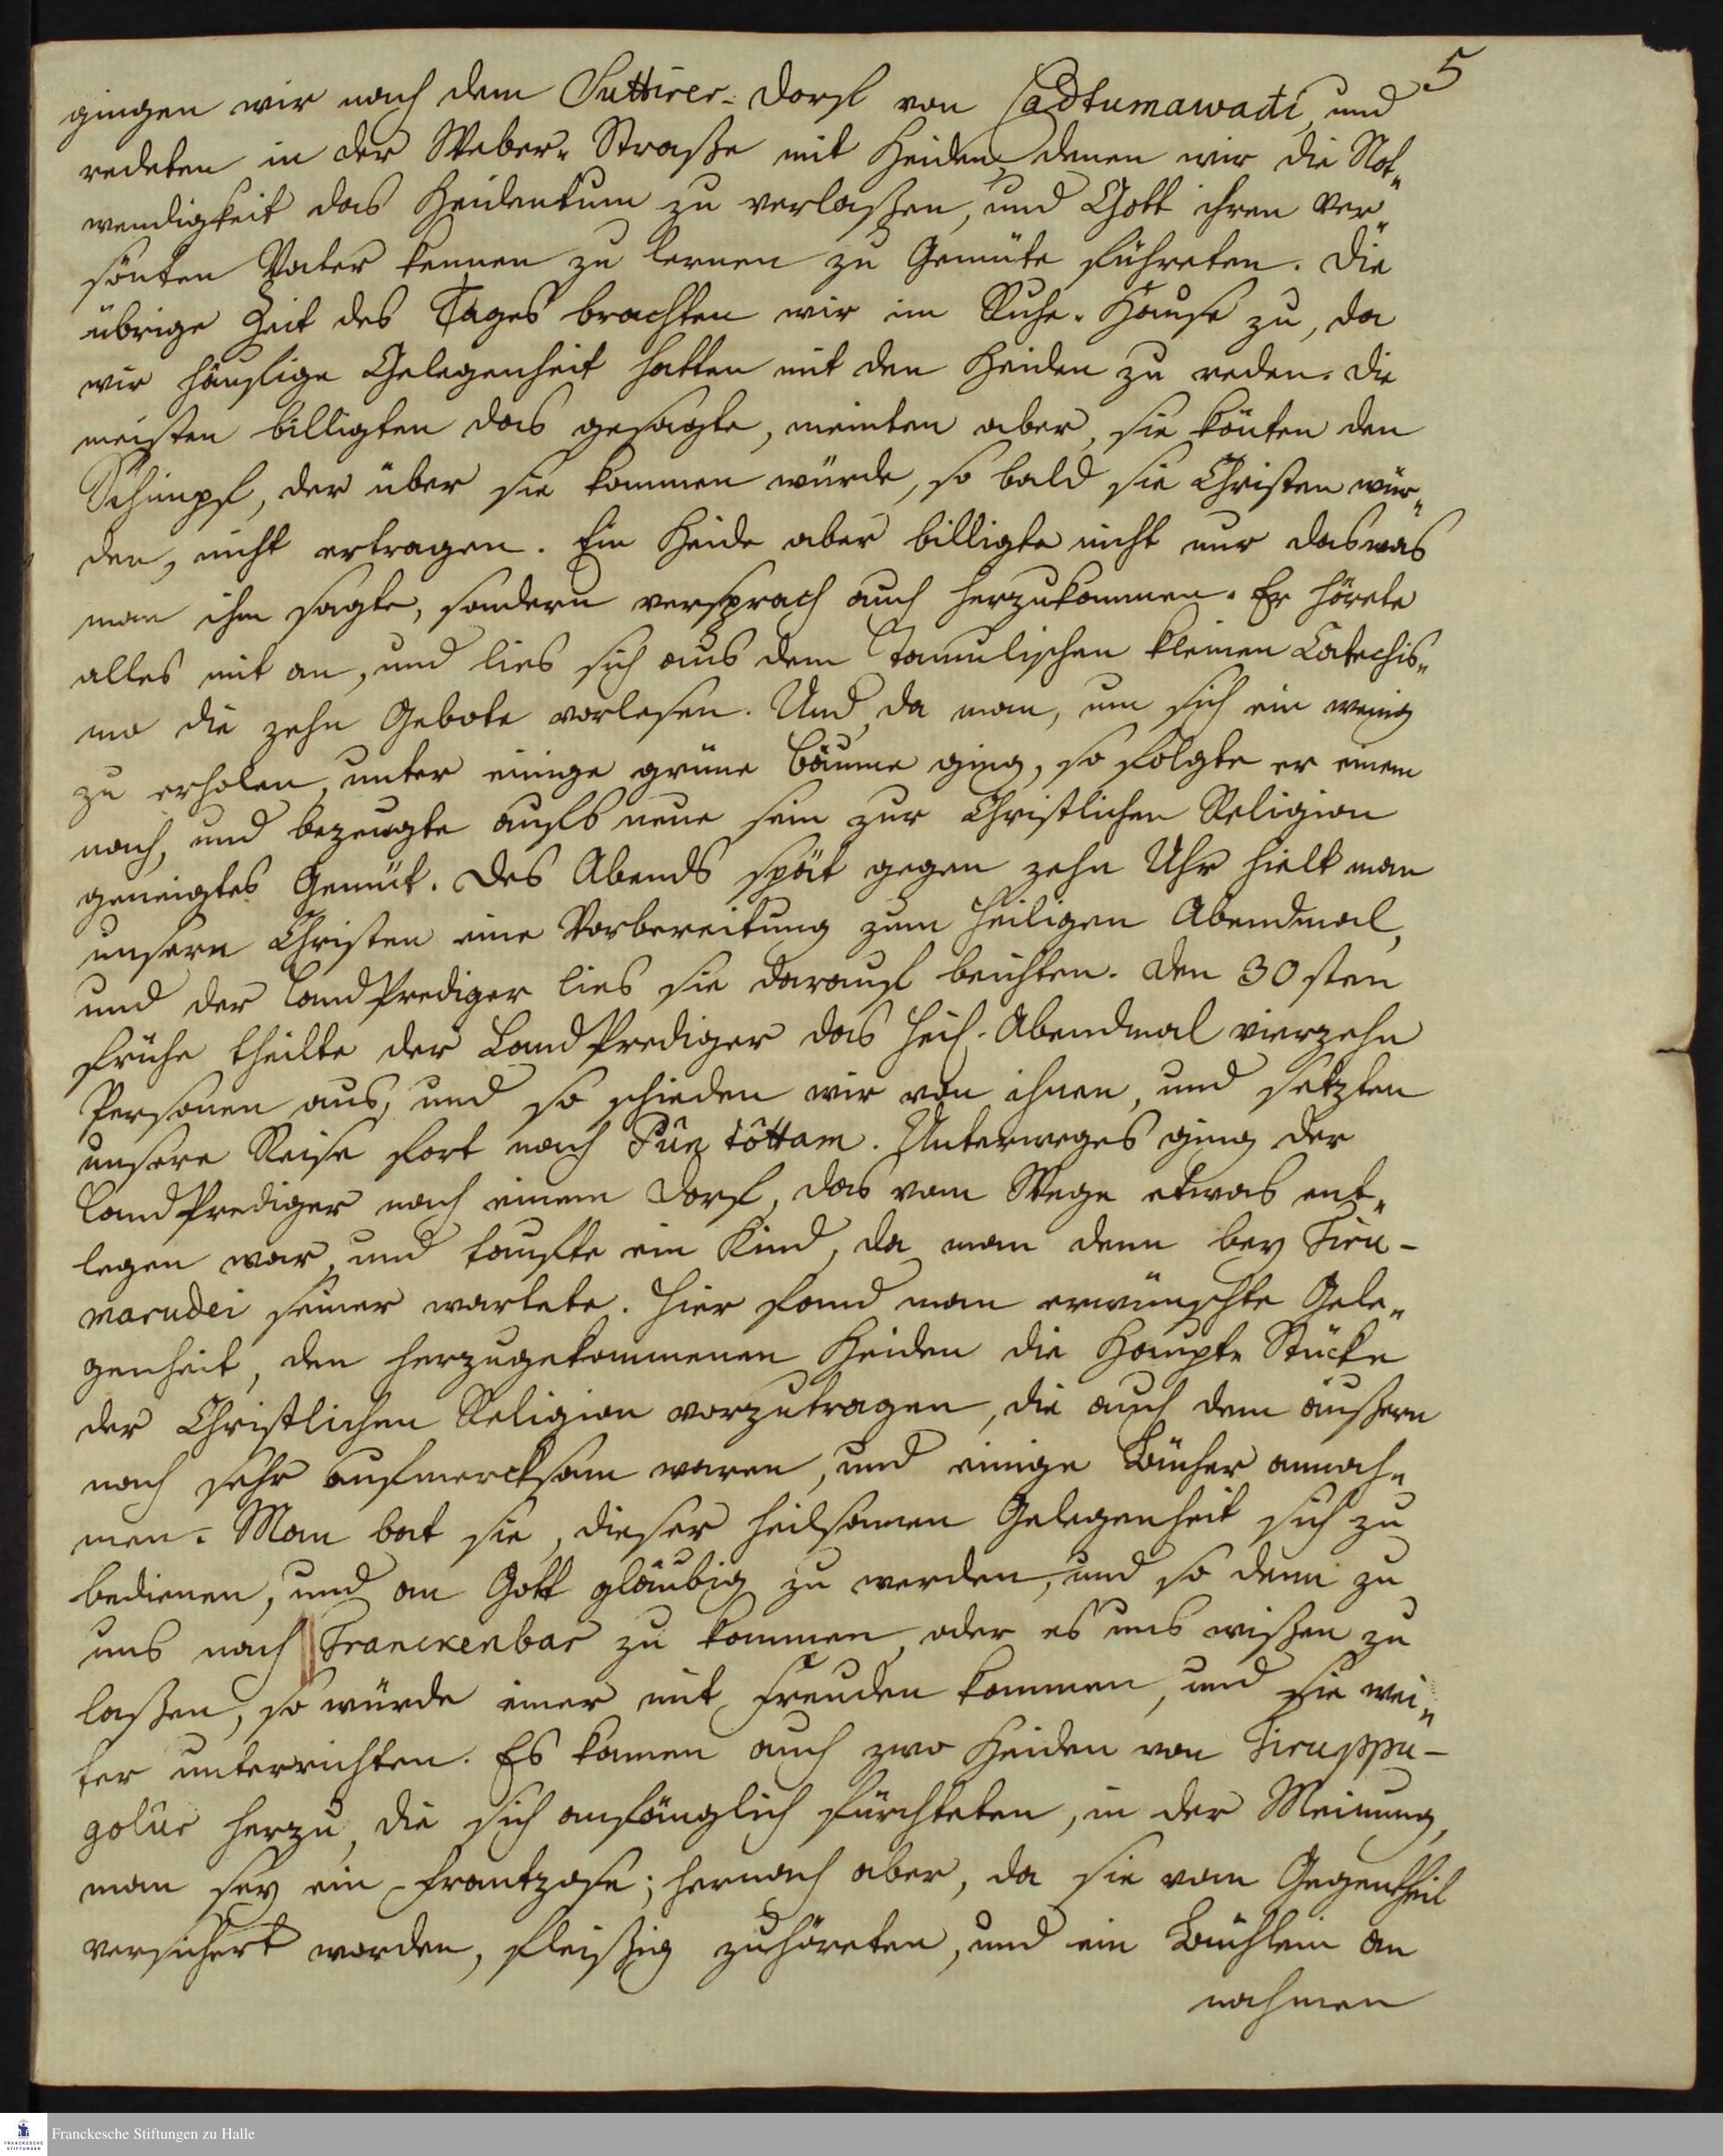 5
gingen wir nach dem Suttirer-Dorf von Cadtumawadi, und
redeten in der Weber-Straße mit Heiden, denen wir die Not-
wendigkeit das Heidentum zu verlaßen, und Gott ihren ver-
sönten Vater kennen zu lernen zu Gemüte führeten. Die
übrige Zeit des Tages brachten wir im Ruhe-Hause zu, da
wir häufige Gelegenheit hatten mit den Heiden zu reden. Die
meisten billigten das gesagte, meinten aber, sie könten den
Schimpf, der über sie kommen würde, so bald sie Christen wür-
den, nicht ertragen. Ein Heide aber billigte nicht nur das was
man ihm sagte, sondern versprach auch herzukommen. Er hörete
alles mit an, und lies sich aus dem Tamulischen kleinen Catechis-
mo die zehn Gebote vorlesen. Und da man, um sich ein wenig
zu erholen, unter einige grüne Bäume ging, so folgte er einem
nach, und bezeugte aufs neue sein zur Christlichen Religion
geneigtes Gemüt. Des Abends spät gegen zehn Uhr hielt man
unsern Christen eine Vorbereitung zum heiligen Abendmal,
und der Land Prediger lies sie darauf beichten. Den 30sten
frühe theilte der Land Prediger das Heil. Abendmal vierzehn
Personen aus, und so schieden wir von ihnen, und setzten
unsere Reise fort nach Pûn tôttam. Unterweges ging der
Land Prediger nach einem Dorf, das vom Wege etwas ent-
legen war, und taufte ein Kind, da man denn bey Tiru-
marudei seiner wartete. Hier fand man erwünschte Gele-
genheit, den herzugekommenen Heiden die Haupt-Stücke
der Christlichen Religion vorzutragen, die auch dem äußern
nach sehr aufmercksam waren, und einige Bücher annah-
men. Man bat sie, dieser heilsamen Gelegenheit sich zu
bedienen, und an Gott gläubig zu werden, und so denn zu
uns nach Tranckenbar zu kommen, oder es uns wißen zu
laßen, so würde einer mit Freuden kommen, und sie wei-
ter unterrichten. Es kamen auch zwo Heiden von Tiruppu-
golûr herzu, die sich anfänglich fürchteten, in der Meinung,
man sey ein Frantzose; hernach aber, da sie vom Gegentheil
versichert worden, fleißig zuhöreten, und ein Büchlein an
nahmen
Franckesche Stiftungen zu Halle